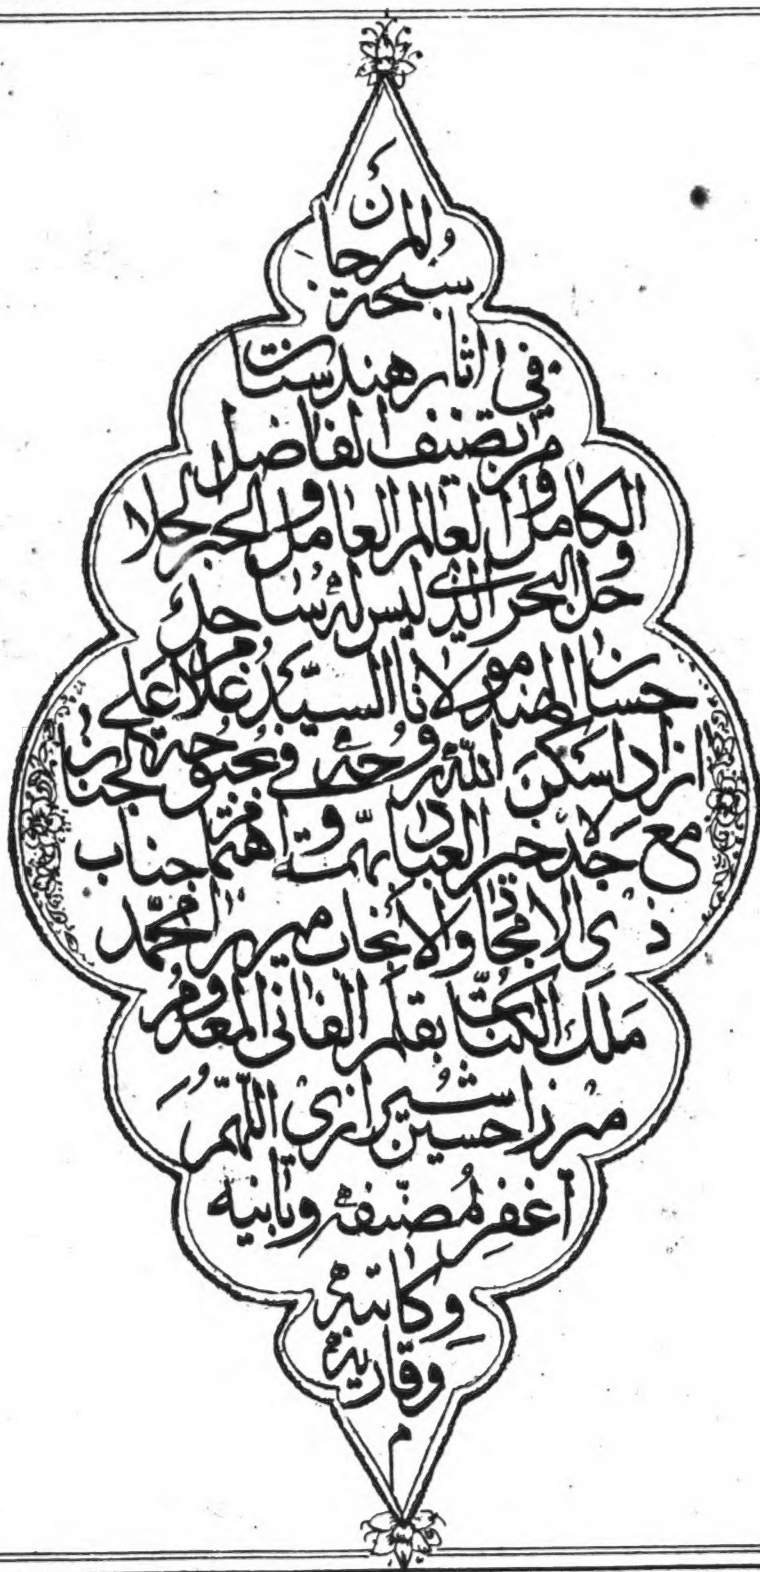 سُبحة المرجان
في اثار هندستان
من تصنيف الفاضل
الكامل و العالم العامل و الحبر الحلا
حل و البحر الذي ليس له ساحل
حسان الهند مولانا السيّد غلام علي
ازاد اسكن الله روحه في بحبوحة الجنان
مع جده خير العباد بهمّت و اهتمام جناب
ذي الامجاد والانجاب ميرزا محمّد
ملك الكتّاب بقلم الفاني المعدوم
ميرزا حسين شيرازى اللهمّ
اغفر لمُصنّفه وبانيه
وكاتبه
وقاريه
م